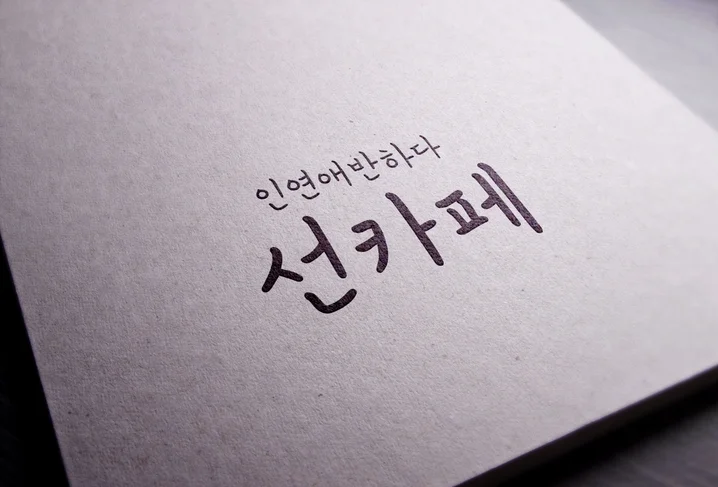 인연애반하다
선카페